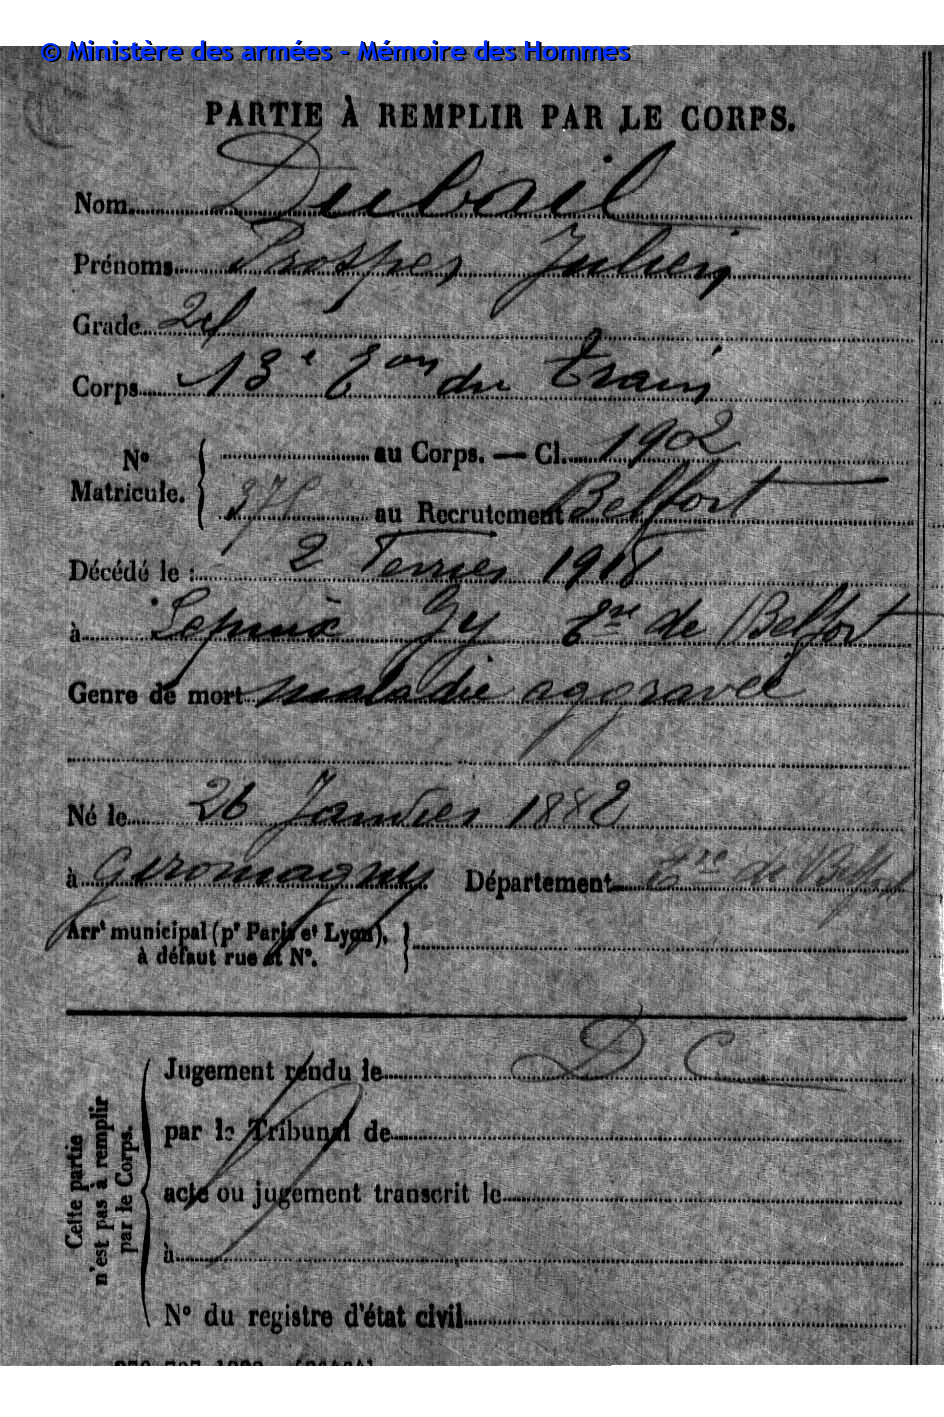 © Ministère des armées - Mémoire des Hommes
PARTIE À REMPLIR PAR LE CORPS.
Nom Dubail
Prénoms Prosper Julien
Grade 2e
Corps 13e Eon du train
No Matricule. { au Corps. — Cl. 1902
375 au Recrutement Belfort
Décédé le : 2 Fevrier 1918
à Lepuix Gy Tre de Belfort
Genre de mort maladie aggravée
Né le 26 Janvier 1882
à Giromagny Département Tre de Belfort
Arrt municipal (pr Paris et Lyon), }
à défaut rue et No.
Cette partie n'est pas à remplir par le Corps.
Jugement rendu le D C
par le Tribunal de
acte ou jugement transcrit le
à
No du registre d'état civil